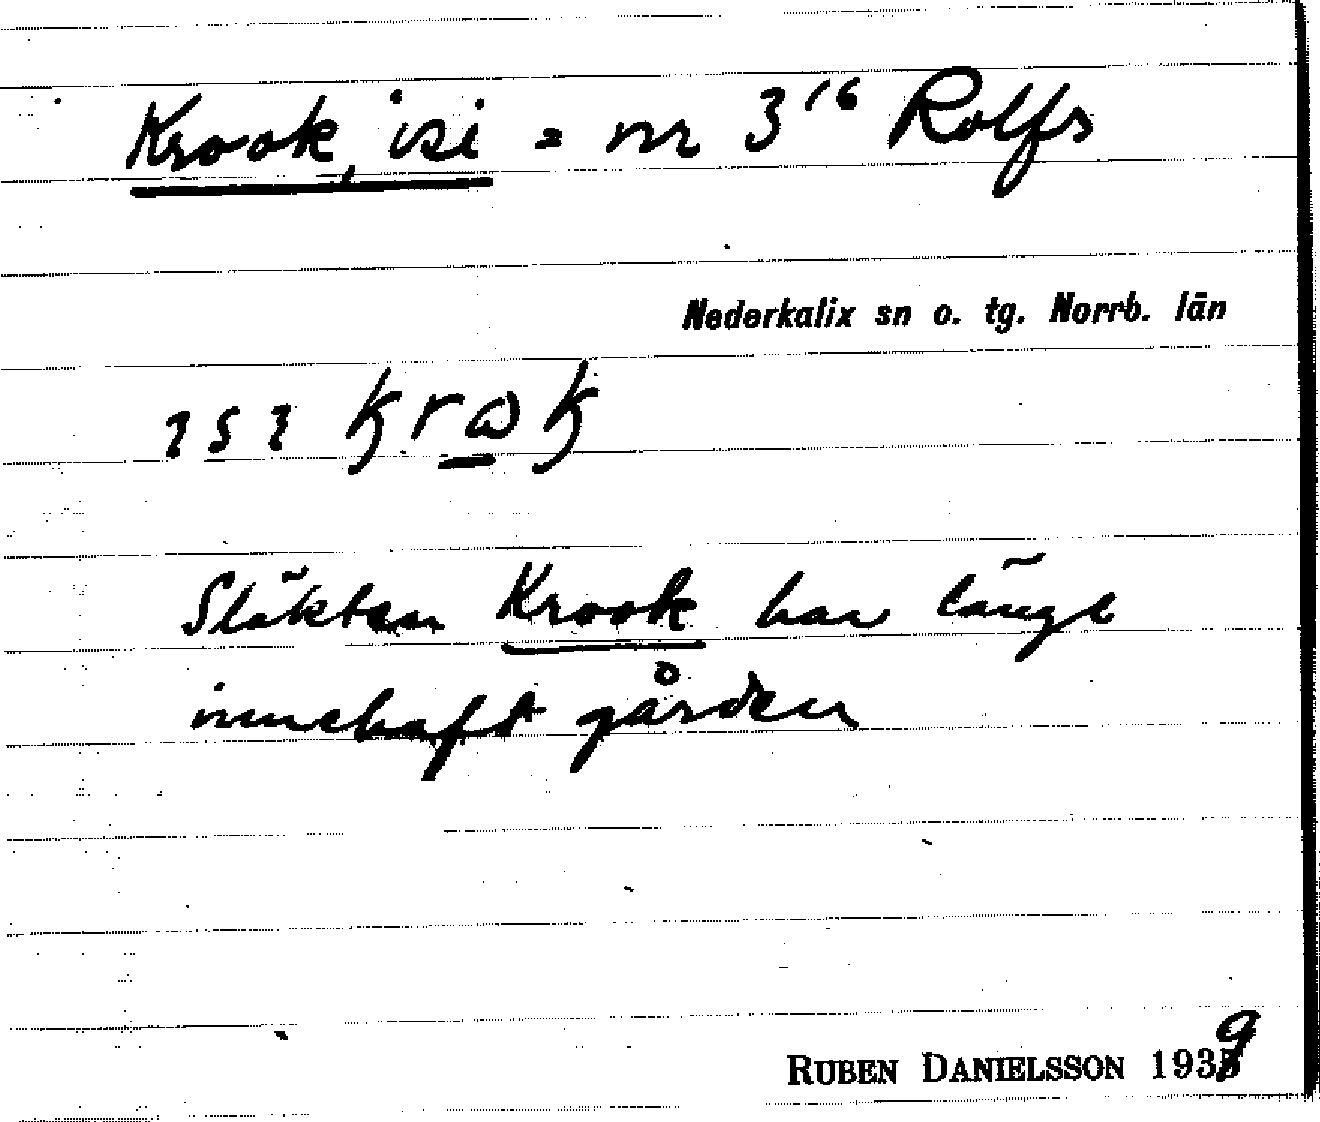 Krook, isi = nr 3¹⁶ Rolfs
Nederkalix sn o. tg. Norrb. län
ɿsɿ krɷk
Släkten Krook har länge
innehaft gården
RUBEN DANIELSSON 1939